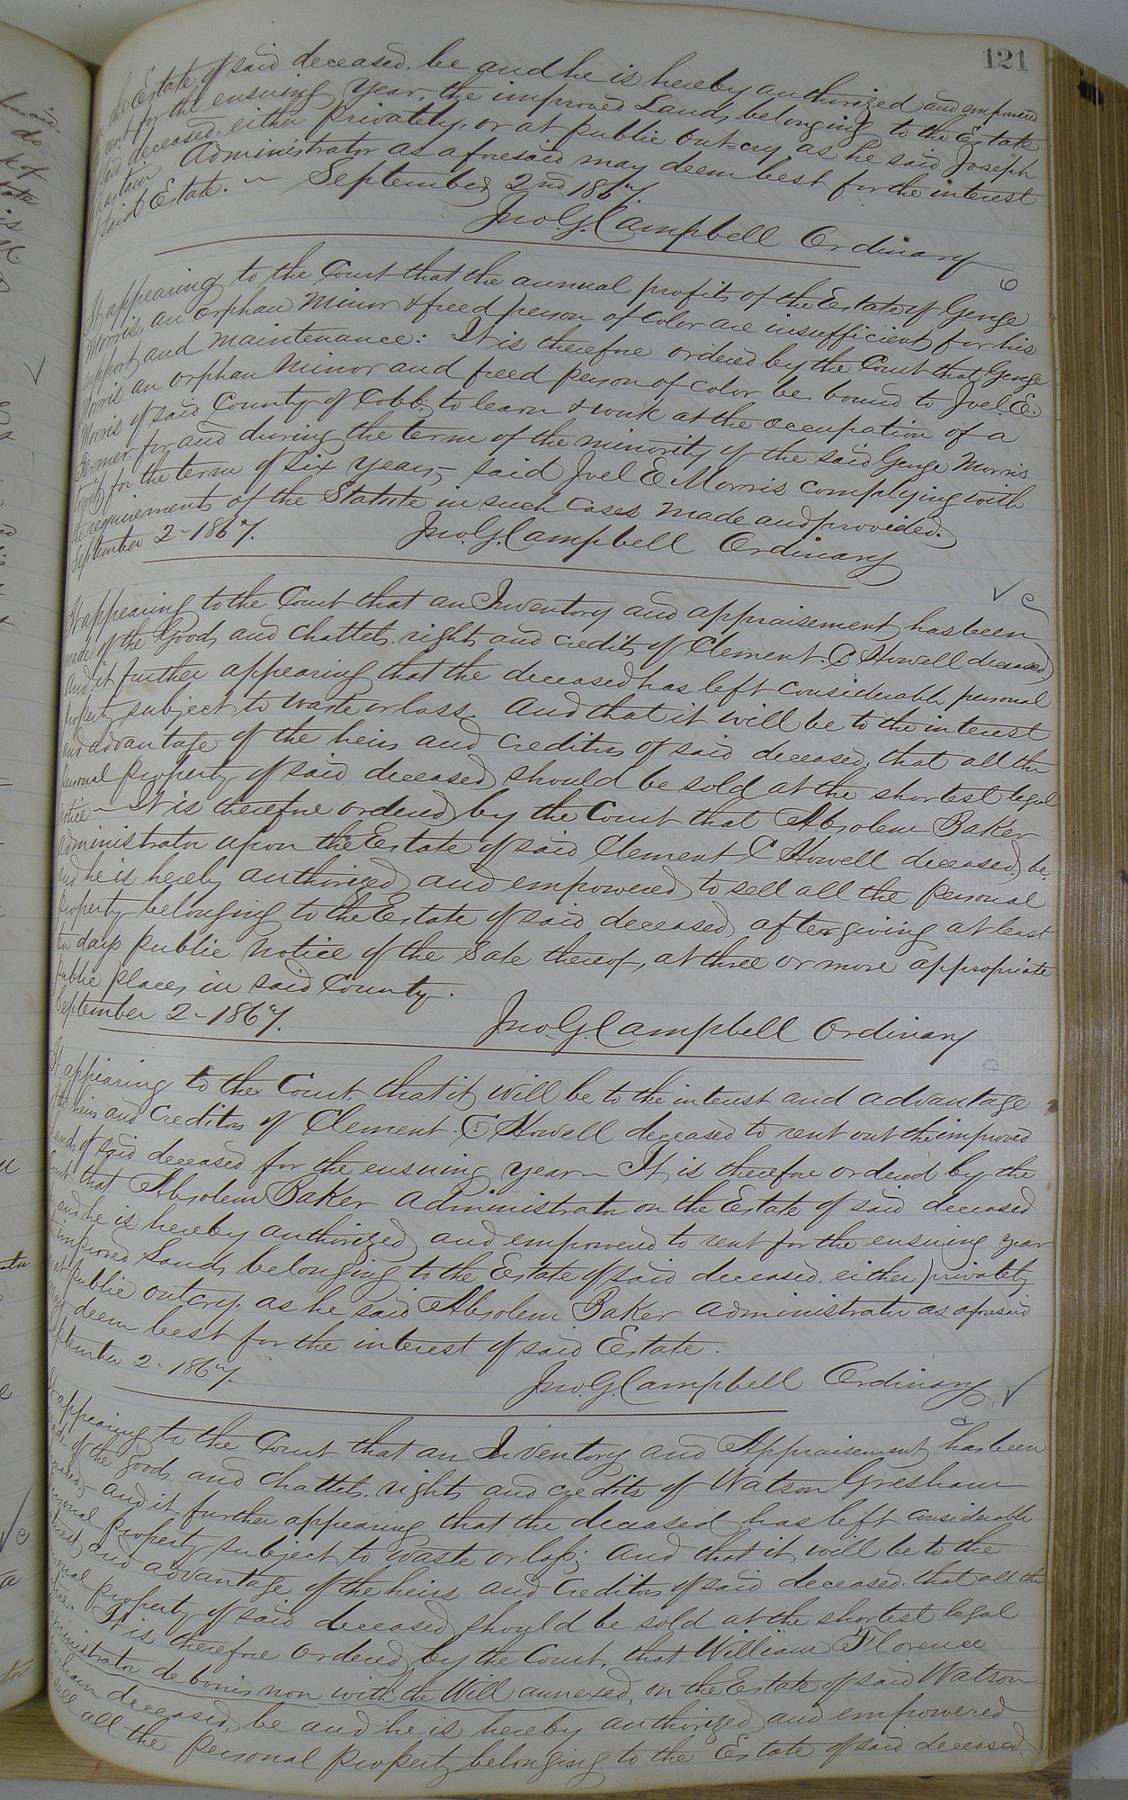 121
the Estate of said deceased, be and he is hereby authorized and empowered
rent for the ensuing year, the improved Lands belonging to the Estate
said deceased, either privately, or at public out-cry as he said Joseph
Administrator as aforesaid may deem best for the interest
said Estate. ~ September 2nd 1867.
Jno. G. Campbell Ordinary
It appearing to the Court that the annual profits of the Estate of George
Morris, an orphan minor & freed person of color are insufficient for his
support and maintenance: It is therefore ordered by the Court that George
Morris an orphan minor and freed person of color be bound to Joel E.
Morris of said County of Cobb, to learn & work at the occupation of a
farmer for and during the term of the minority of the said George Morris
for the term of six years,- said Joel E Morris complying with
the requirements of the Statute in such cases made and provided.
September 2- 1867. Jno. G. Campbell Ordinary
It appearing to the Court that an Inventory and appraisement has been
made of the Goods and Chattels, rights and credits of Clement C Howell deceased
and it further appearing that the deceased has left considerable personal
property subject to waste or loss, And that it will be to the interest
and advantage of the heirs and creditors of said deceased, that all the
personal property of said deceased, should be sold at the shortest legal
notice ~ It is therefore ordered by the Court that Absolem Baker
administrator upon the Estate of said Clement C Howell deceased, be
and he is hereby authorized and empowered to sell all the personal
property belonging to the Estate of said deceased after giving at least
ten days public notice of the Sale thereof, at three or more appropriate
public places in said County.
September 2- 1867. Jno. G. Campbell Ordinary
It appearing to the Court that it will be to the interest and advantage
of the heirs and Creditors of Clement C Howell deceased to rent out the improved
Lands of said deceased for the ensuing year ~ It is therefore ordered by the
Court that Absolem Baker Administrator on the Estate of said deceased
and he is hereby authorized and empowered to rent for the ensuing year
improved Lands belonging to the Estate of said deceased either privately
public outcry. as he said Absolem Baker administrator as aforesaid
may deem best for the interest of said Estate.
September 2- 1867. Jno. G. Campbell Ordinary
It appearing to the Court that an Inventory and Appraisement has been
made of the goods and Chattels, rights and credits of Watson Gresham
deceased- and it further appearing that the deceased has left considerable
personal property subject to waste or loss; and that it will be to the
interest and advantage of the heirs and creditors of said deceased. that all the
personal property of said deceased should be sold at the shortest legal
notice. It is therefore ordered by the Court, that William Florence
administrator de bonis non with the Will annexed, on the Estate of said Watson
Gresham deceased, be and he is hereby authorized and empowered
sell all the personal property belonging to the Estate of said deceased